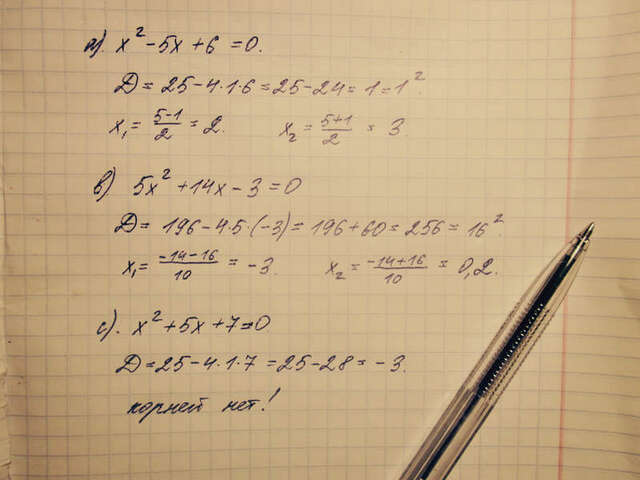 а). x² - 5x + 6 = 0.
Д = 25 - 4·1·6 = 25 - 24 = 1 = 1².
x₁ = (5-1)/2 = 2. x₂ = (5+1)/2 = 3.
в) 5x² + 14x - 3 = 0
Д = 196 - 4·5·(-3) = 196 + 60 = 256 = 16².
x₁ = (-14-16)/10 = -3. x₂ = (-14+16)/10 = 0,2.
с). x² + 5x + 7 = 0
Д = 25 - 4·1·7 = 25 - 28 = -3.
корней нет!